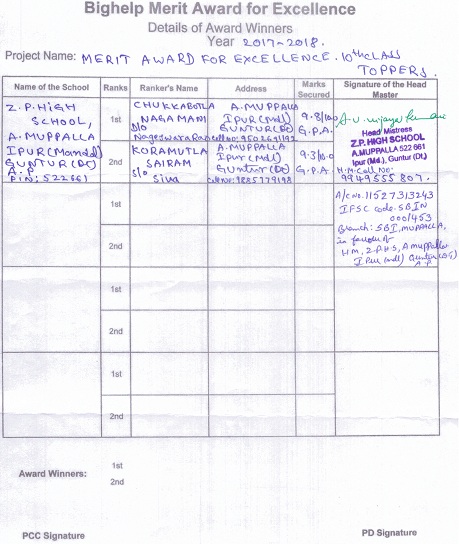 Bighelp Merit Award for Excellence
Details of Award Winners
Year 2017-2018.
Project Name: MERIT AWARD FOR EXCELLENCE. 10th CLASS
TOPPERS.
Name of the School Ranks Ranker's Name Address Marks Secured Signature of the Head Master
Z.P.HIGH
SCHOOL,
A.MUPPALLA
IPUR(Mandal)
GUNTUR(Dt)
A.P
PIN: 522661
1st
CHUKKABOTLA
NAGAMANI
D/o
Nageswara Rao
A.MUPPALLA
IPUR(Mdl)
GUNTUR(Dt)
9.8/10.0
G.P.A.
Head Mistress
Z.P. HIGH SCHOOL
A.MUPPALLA 522 661
Ipur (Md.), Guntur (Dt)
2nd
KORAMUTLA
SAIRAM
S/o
Siva
A.MUPPALLA
IPUR(Mdl)
GUNTUR(Dt)
Cell No: 9885779198
9.3/10.0
G.P.A.
H.M. Cell No:
9949555807.
1st
2nd
A/c no. 11527313243
IFSC code. SBIN
0001453
Branch: SBI, MUPPALLA,
in favour of
HM, Z.P.H.S, A.muppalla
IPur (mdl) Guntur (DT)
A.P
1st
2nd
1st
2nd
Award Winners: 1st
2nd
PCC Signature PD Signature